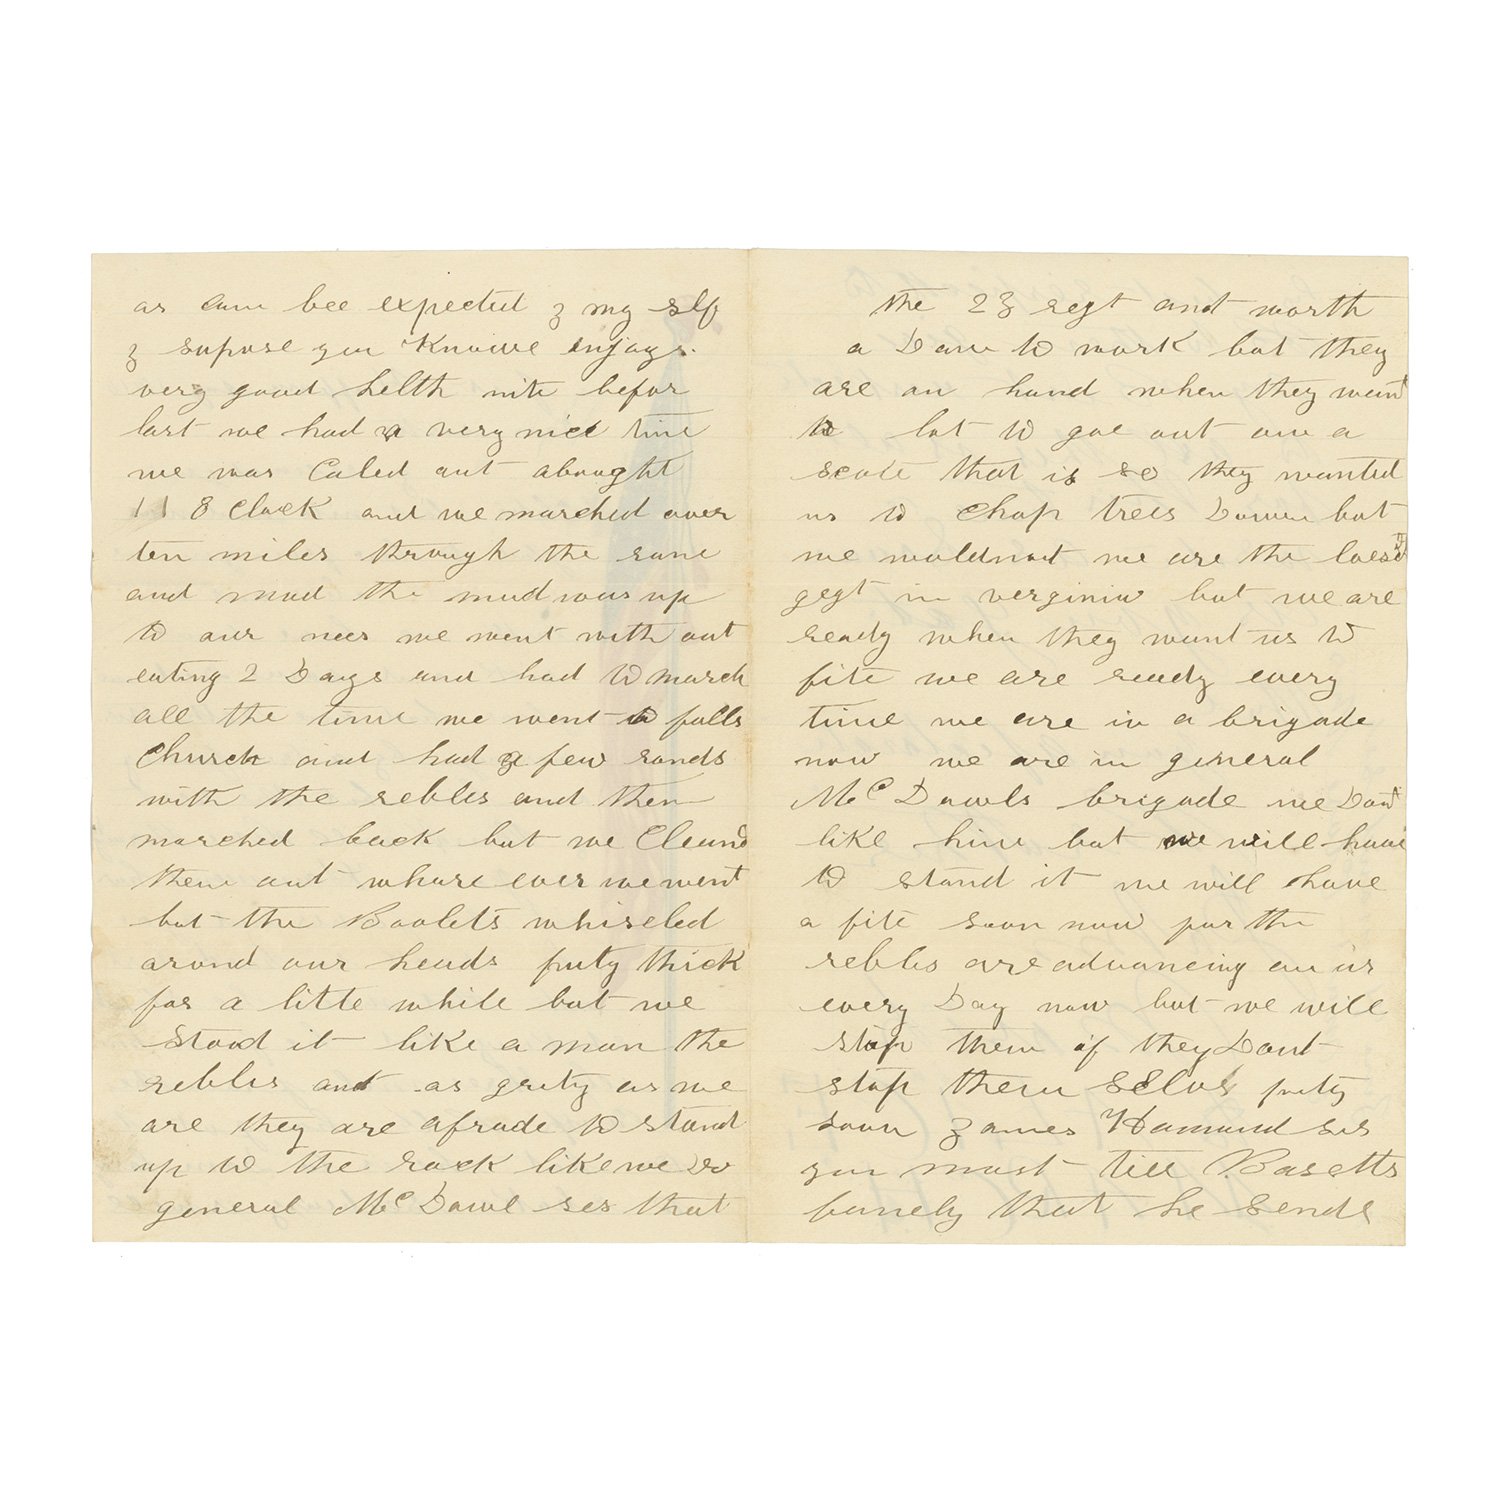 as cam bee expected I my self
I supose you Knowe injoys
very good helth nite befor
last we had a very nice time
we was Caled out abought
11 8 Clock and we marched over
ten miles through the rane
and mud the mud was up
to our nees we went with out
eating 2 Days and had to march
all the time we went to falls
Church and had a few rands
with the rebles and then
marched back but we Cleand
them out whare ever we went
but the Boolets whiseled
arond our heads prity thick
for a litte while but we
stood it like a man the
rebles ant as grity as we
are they are afrade to stand
up to the rack like we Do
general McDowl ses that
the 23 regt ant worth
a Dam to work but they
are on hand when they want
to lot to goe out on a
scote that is so they wanted
us to Chop trees Down but
we wouldnot we are the loesd
gegt in verginia but we are
ready when they want us to
fite we are ready every
time we are in a brigade
now we are in general
McDowls brigade we Dont
like him but we will have
to stand it we will have
a fite soon now for the
rebles are advancing on us
every Day now but we will
stop them if they Dont
stop them selvs prity
soon James Hamund ses
you must till Basetts
famely that he sends